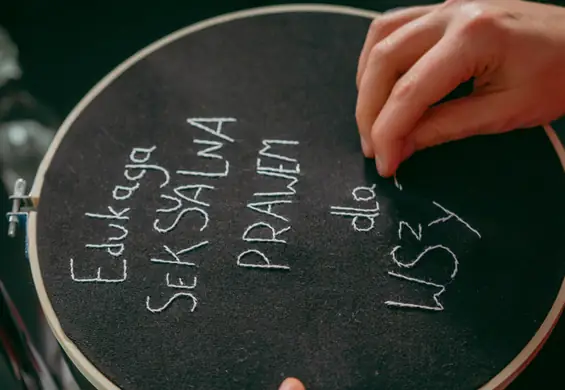 Edukacja
SEKSUALNA
PRAWEM
dla
WSZY